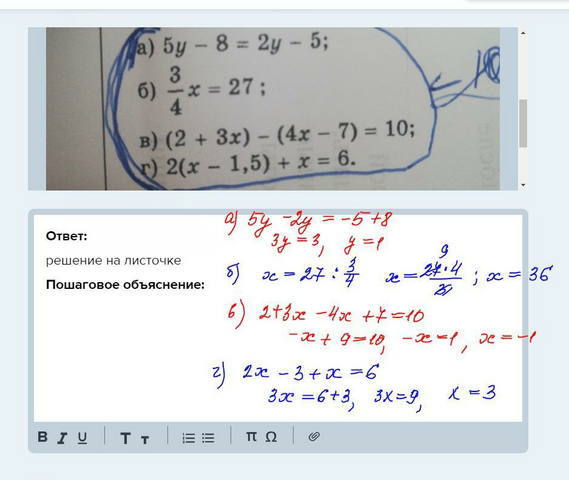 а) 5y − 8 = 2y − 5;
б) 3/4 x = 27;
в) (2 + 3x) − (4x − 7) = 10;
г) 2(x − 1,5) + x = 6.
Ответ:
решение на листочке
Пошаговое объяснение:
а) 5y − 2y = −5 + 8
3y = 3, y = 1
б) x = 27 : 3/4 x = 27·4/ ; x = 36
9
в) 2 + 3x − 4x + 7 = 10
−x + 9 = 10, −x = 1, x = −1
г) 2x − 3 + x = 6
3x = 6 + 3, 3x = 9, x = 3
B I U T т π Ω